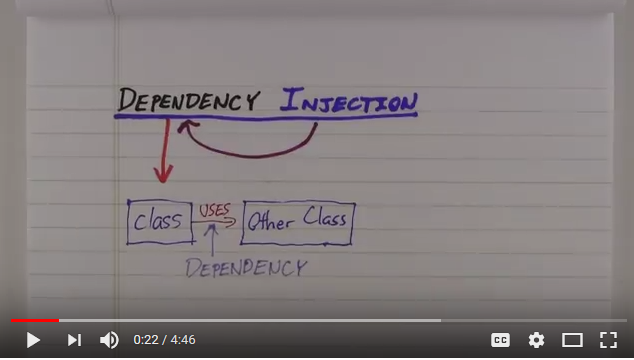 DEPENDENCY INJECTION
class USES Other Class
DEPENDENCY
0:22 / 4:46
CC